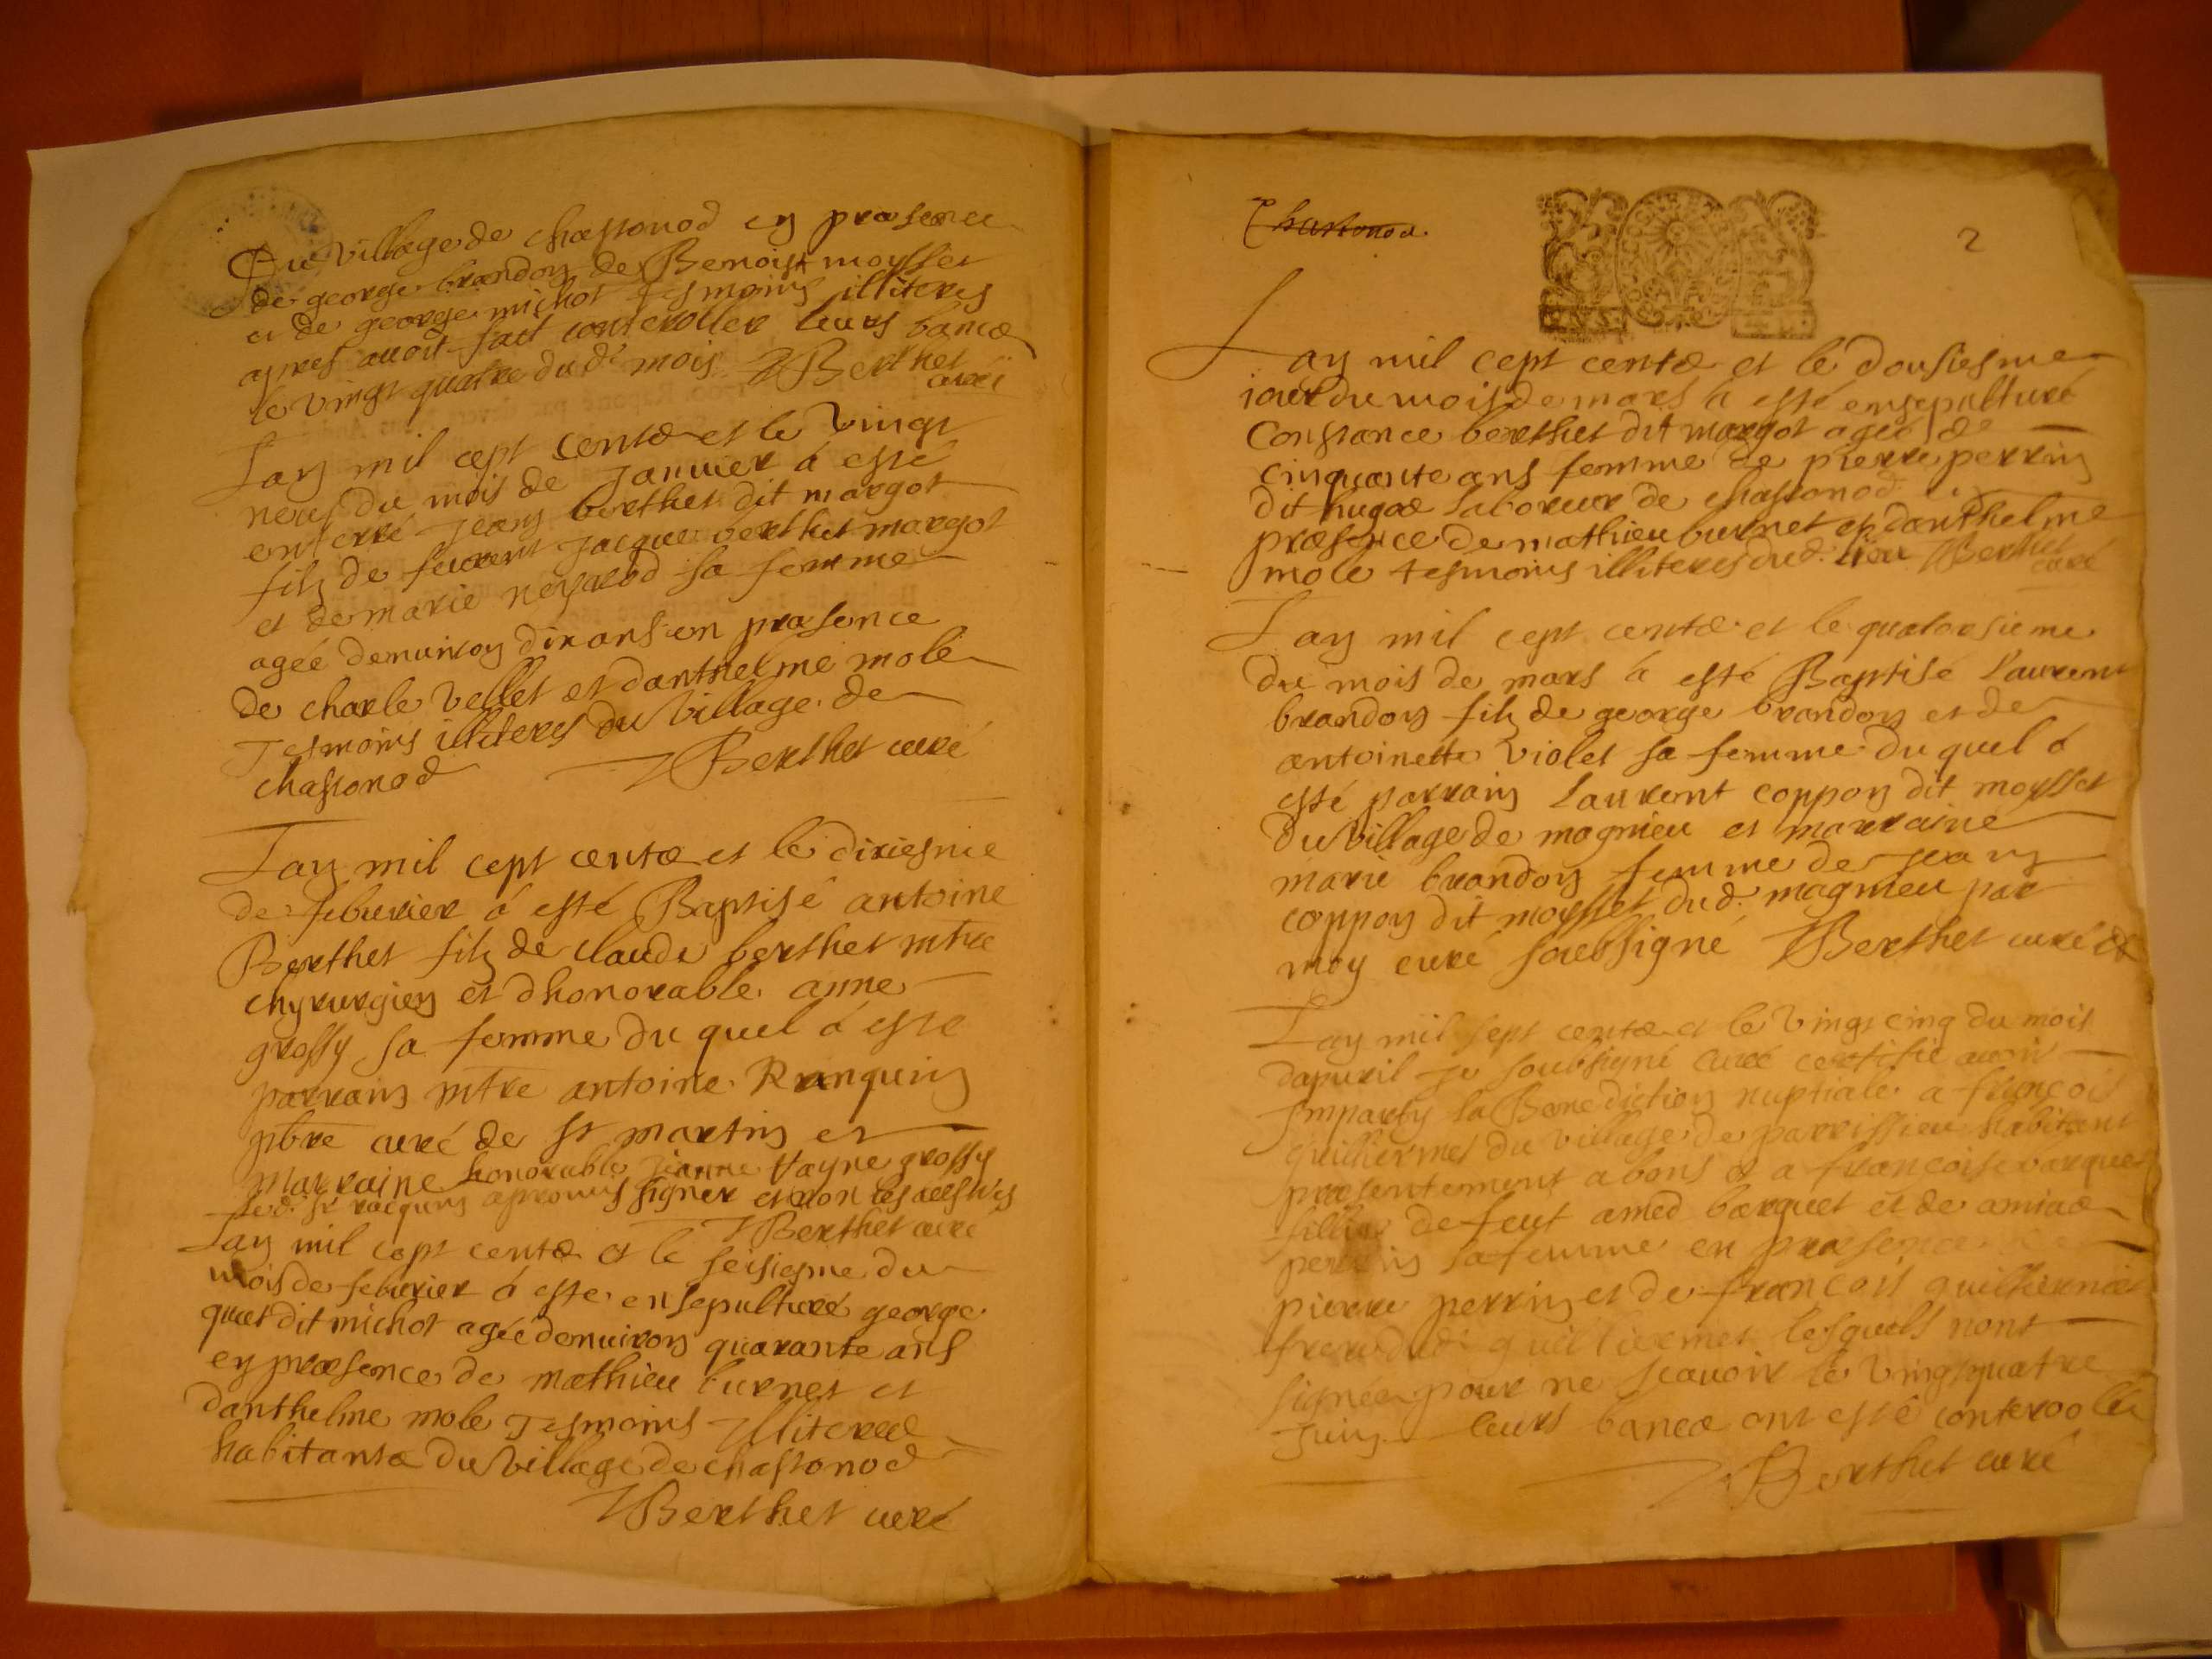 Du village de chastonod en præsence
de george brandon de Benoist moysset
et de george michot tesmoins illiteres
apres avoir fait conteroller leurs bancæ
le vingt quatre du dt mois Berthet
curé
Lan mil cept centæ et le vingt
neuf du mois de Janvier à esté
enterré Jean berthet dit margot
filz de Jacque berthet margot
et de marie sa femme
agée denuiron dix ans en præsence
de charle vellet et danthelme mole
Tesmoins illiteres du village de
chastonod Berthet curé
Lan mil cept centæ et le dixiesme
de feburier à esté Baptisé antoine
Berthet filz de claude berthet mtre
chyrurgien et dhonorable anne
grossy sa femme du quel à esté
parrain mtre antoine Ranquin
pbre curé de st martin et
marraine honorable Jeanne grossy
led. sr signer et non les
Berthet curé
Lan mil cept centæ et le seisiesme du
mois de feburier à esté ensepulturé george
quet dit michot agée denuiron quarante ans
en præsence de mathieu burnet et
danthelme mole Tesmoins Illiteræ
habitantæ du village de chastonod
Berthet curé
Chastonod.
2
Lan mil cept centæ et le dousiesme
iour du mois de mars à esté ensepulturé
Constance berthet dit margot agée de
cinquante ans femme de pierre perrin
dit hugoæ laboreur de chastonod
præsence de mathieu burnet et danthelme
mole tesmoins illiteres dud. lieu Berthet
curé
Lan mil cept centæ et le quatorsieme
du mois de mars à esté Baptisé Laurent
brandon filz de george brandon et de
antoinette violet sa femme du quel à
esté parrain Laurent coppon dit moysset
du village de magnieu et marraine
marie brandon femme de Jean
coppon dit moysset dud. magnieu par
moy curé soubsigné Berthet curé
Lan mil sept centæ et le vingt cinq du mois
dapuril Je soubsigné curé certifie auoir
Imparty la Benediction nuptiale a françois
guilhermet du village de parrissieu habitant
præsentement a bons et a françoise barquet
fille de feut amed barquet et de amiaæ
perrin sa femme en præsence de
pierre perrin et de françois guilhermet
frere dud. guilhermet lesquels nont
signée pour ne scauoir le vingt quatre
Juin leurs bancæ ont esté conteroolée
Berthet curé